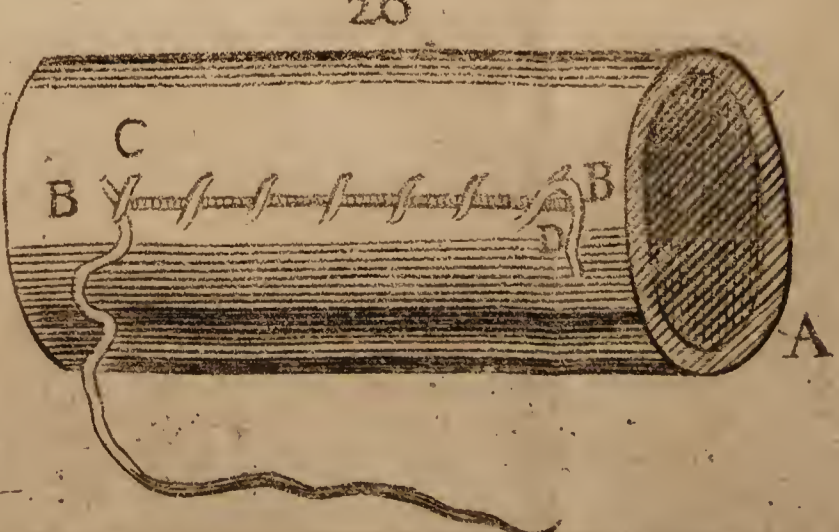 26
C
B B
D
A